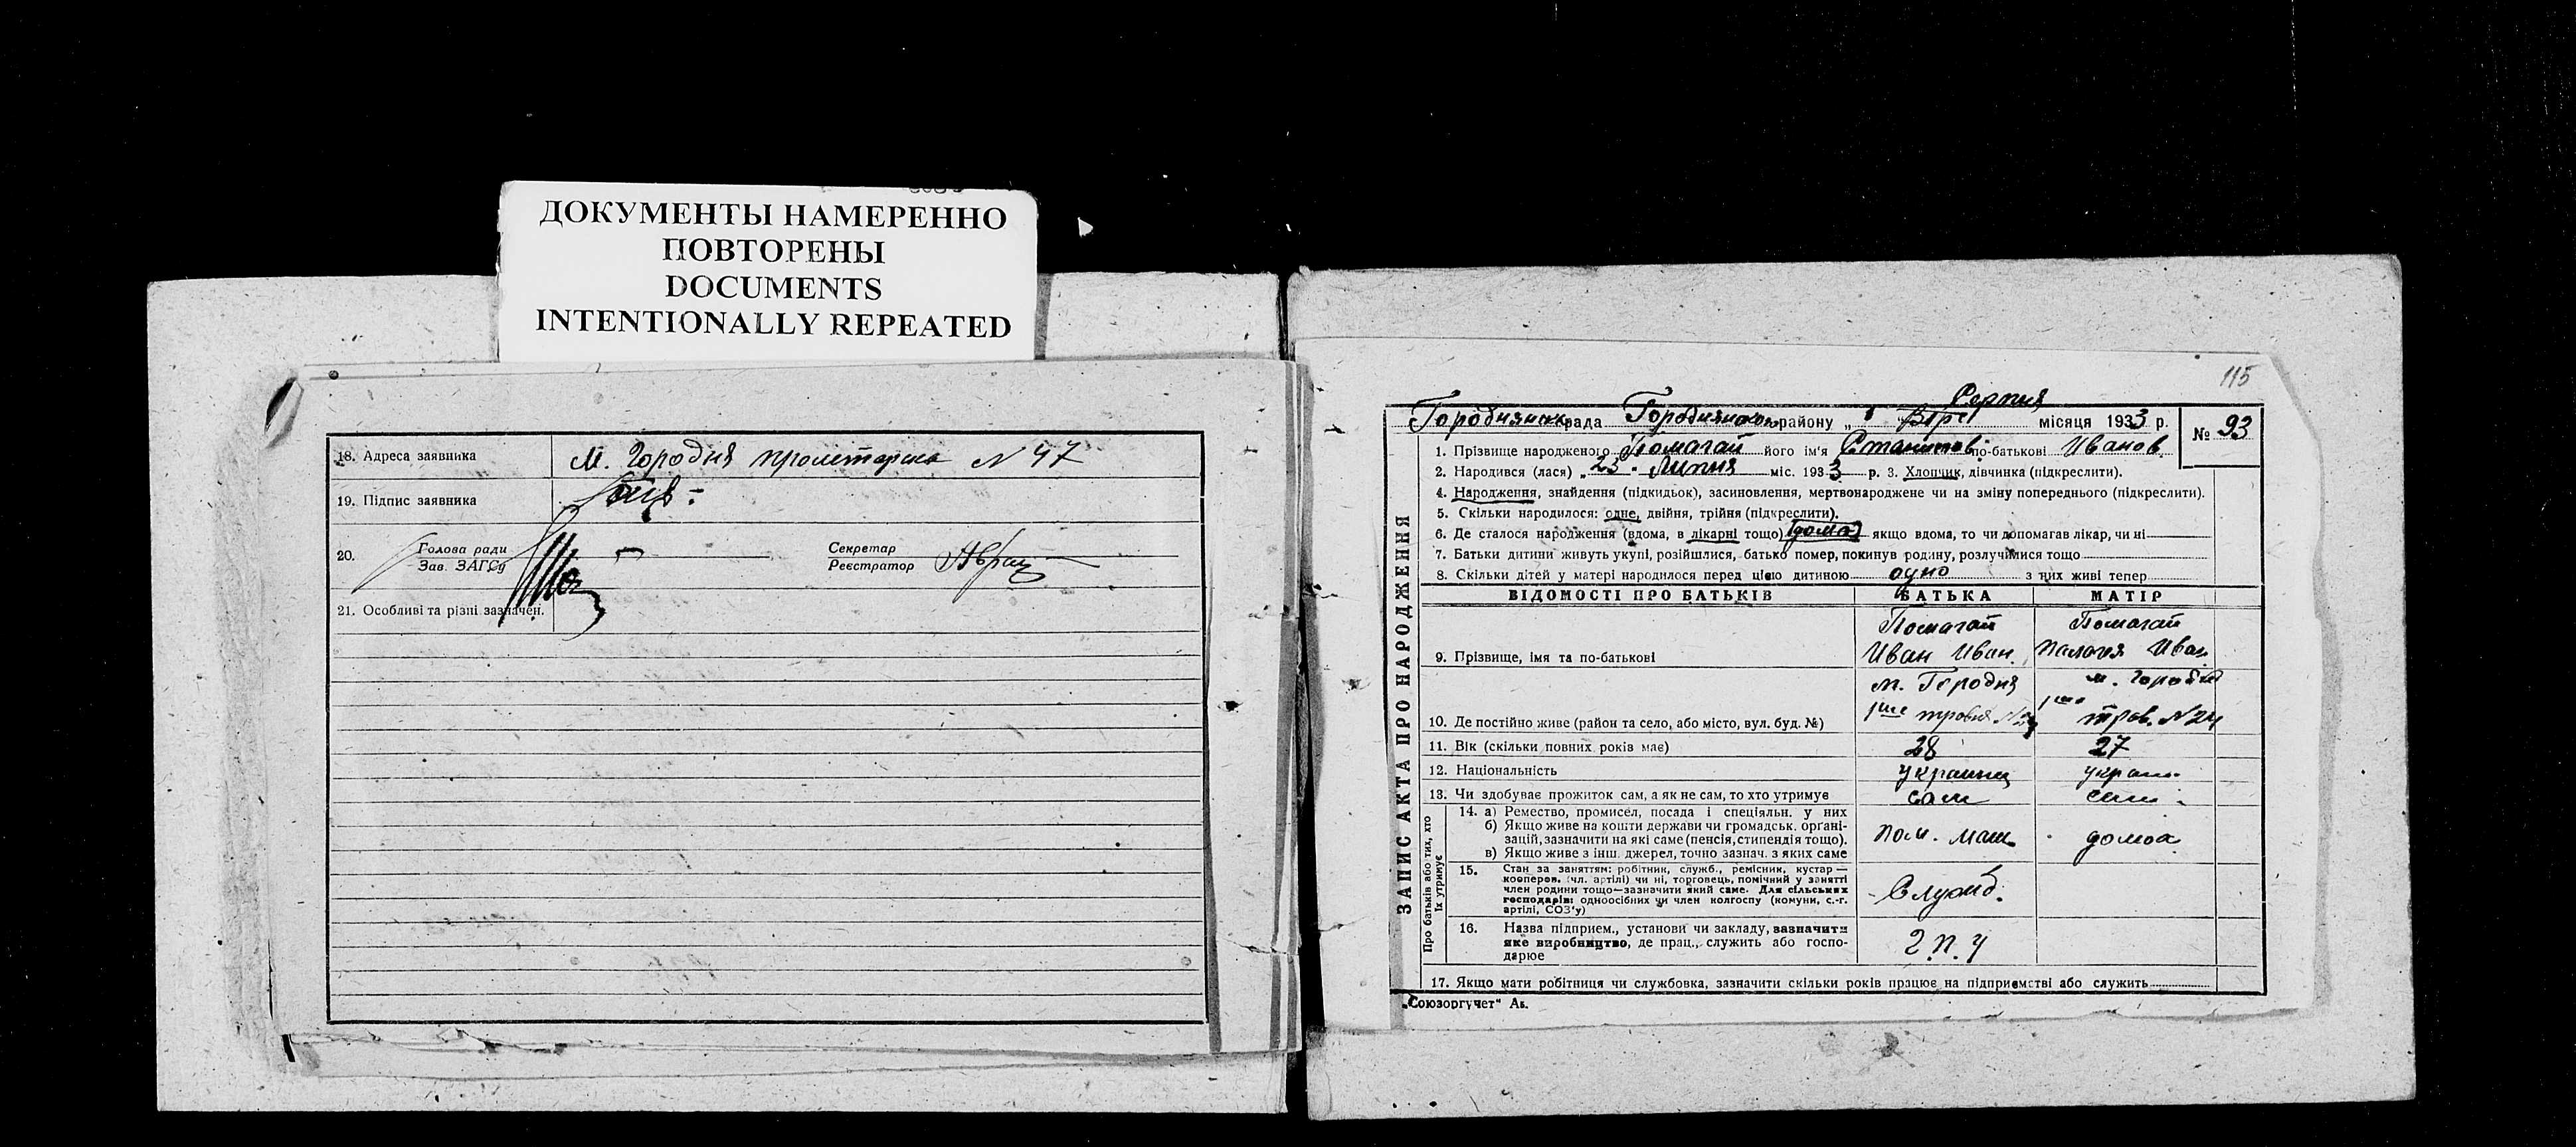 ДОКУМЕНТЫ НАМЕРЕННО
ПОВТОРЕНЫ
DOCUMENTS
INTENTIONALLY REPEATED
18. Адреса заявника м. Городня пролетарска N 47
19. Підпис заявника
20. Голова ради
Зав. ЗАГСу
Секретар
Реєстратор
21. Особливі та різні зазначен.
115
Серпня
рада району „ 1 місяця 1933 р.
№ 93
1. Прізвище народженого Помагай його ім'я по-батькові Иванов
2. Народився (лася) „ 23 Липня міс. 1933 р. 3. Хлопчик, дівчинка (підкреслити).
4. Народження, знайдення (підкидьок), засиновлення, мертвонароджене чи на зміну попереднього (підкреслити).
5. Скільки народилося: одне, двійня, трійня (підкреслити).
6. Де сталося народження (вдома, в лікарні тощо) дома якщо вдома, то чи допомагав лікар, чи ні
7. Батьки дитини живуть укупі, розійшлися, батько помер, покинув родину, розлучилися тощо
8. Скільки дітей у матері народилося перед цією дитиною одно з них живі тепер
ЗАПИС АКТА ПРО НАРОДЖЕННЯ
ВІДОМОСТІ ПРО БАТЬКІВ БАТЬКА МАТІР
Помагай Помагай
9. Прізвище, імя та по-батькові Иван Иван. Палагея Иван
м. Городня м. Городня
10. Де постійно живе (район та село, або місто, вул. буд. №) 1ше травня 1ше трав. N 24
11. Вік (скільки повних років має) 28 27
12. Національність украинец украин.
13. Чи здобуває прожиток сам, а як не сам, то хто утримує сам
Про батьків або тих, хто
їх утримує
14. а) Ремество, промисел, посада і спеціяльн. у них
б) Якщо живе на кошти держави чи громадськ. організацій, зазначити на які саме (пенсія, стипендія тощо).
в) Якщо живе з інш. джерел, точно зазнач. з яких саме
пом. маш. домог.
15. Стан за заняттям: робітник, служб., ремісник, кустар —
кооперов. (чл. артілі) чи ні, торговець, помічний у занятті
член родини тощо—зазначити який саме. Для сільських
господарів: одноосібних чи член колгоспу (комуни, с.-г.
артілі, СОЗ'у)
Служб.
16. Назва підприєм., установи чи закладу, зазначити
яке виробництво, де прац., служить або господарює
Г.П.У
17. Якщо мати робітниця чи службовка, зазначити скільки років працює на підприємстві або служить
„Союзоргучет“ Ав.